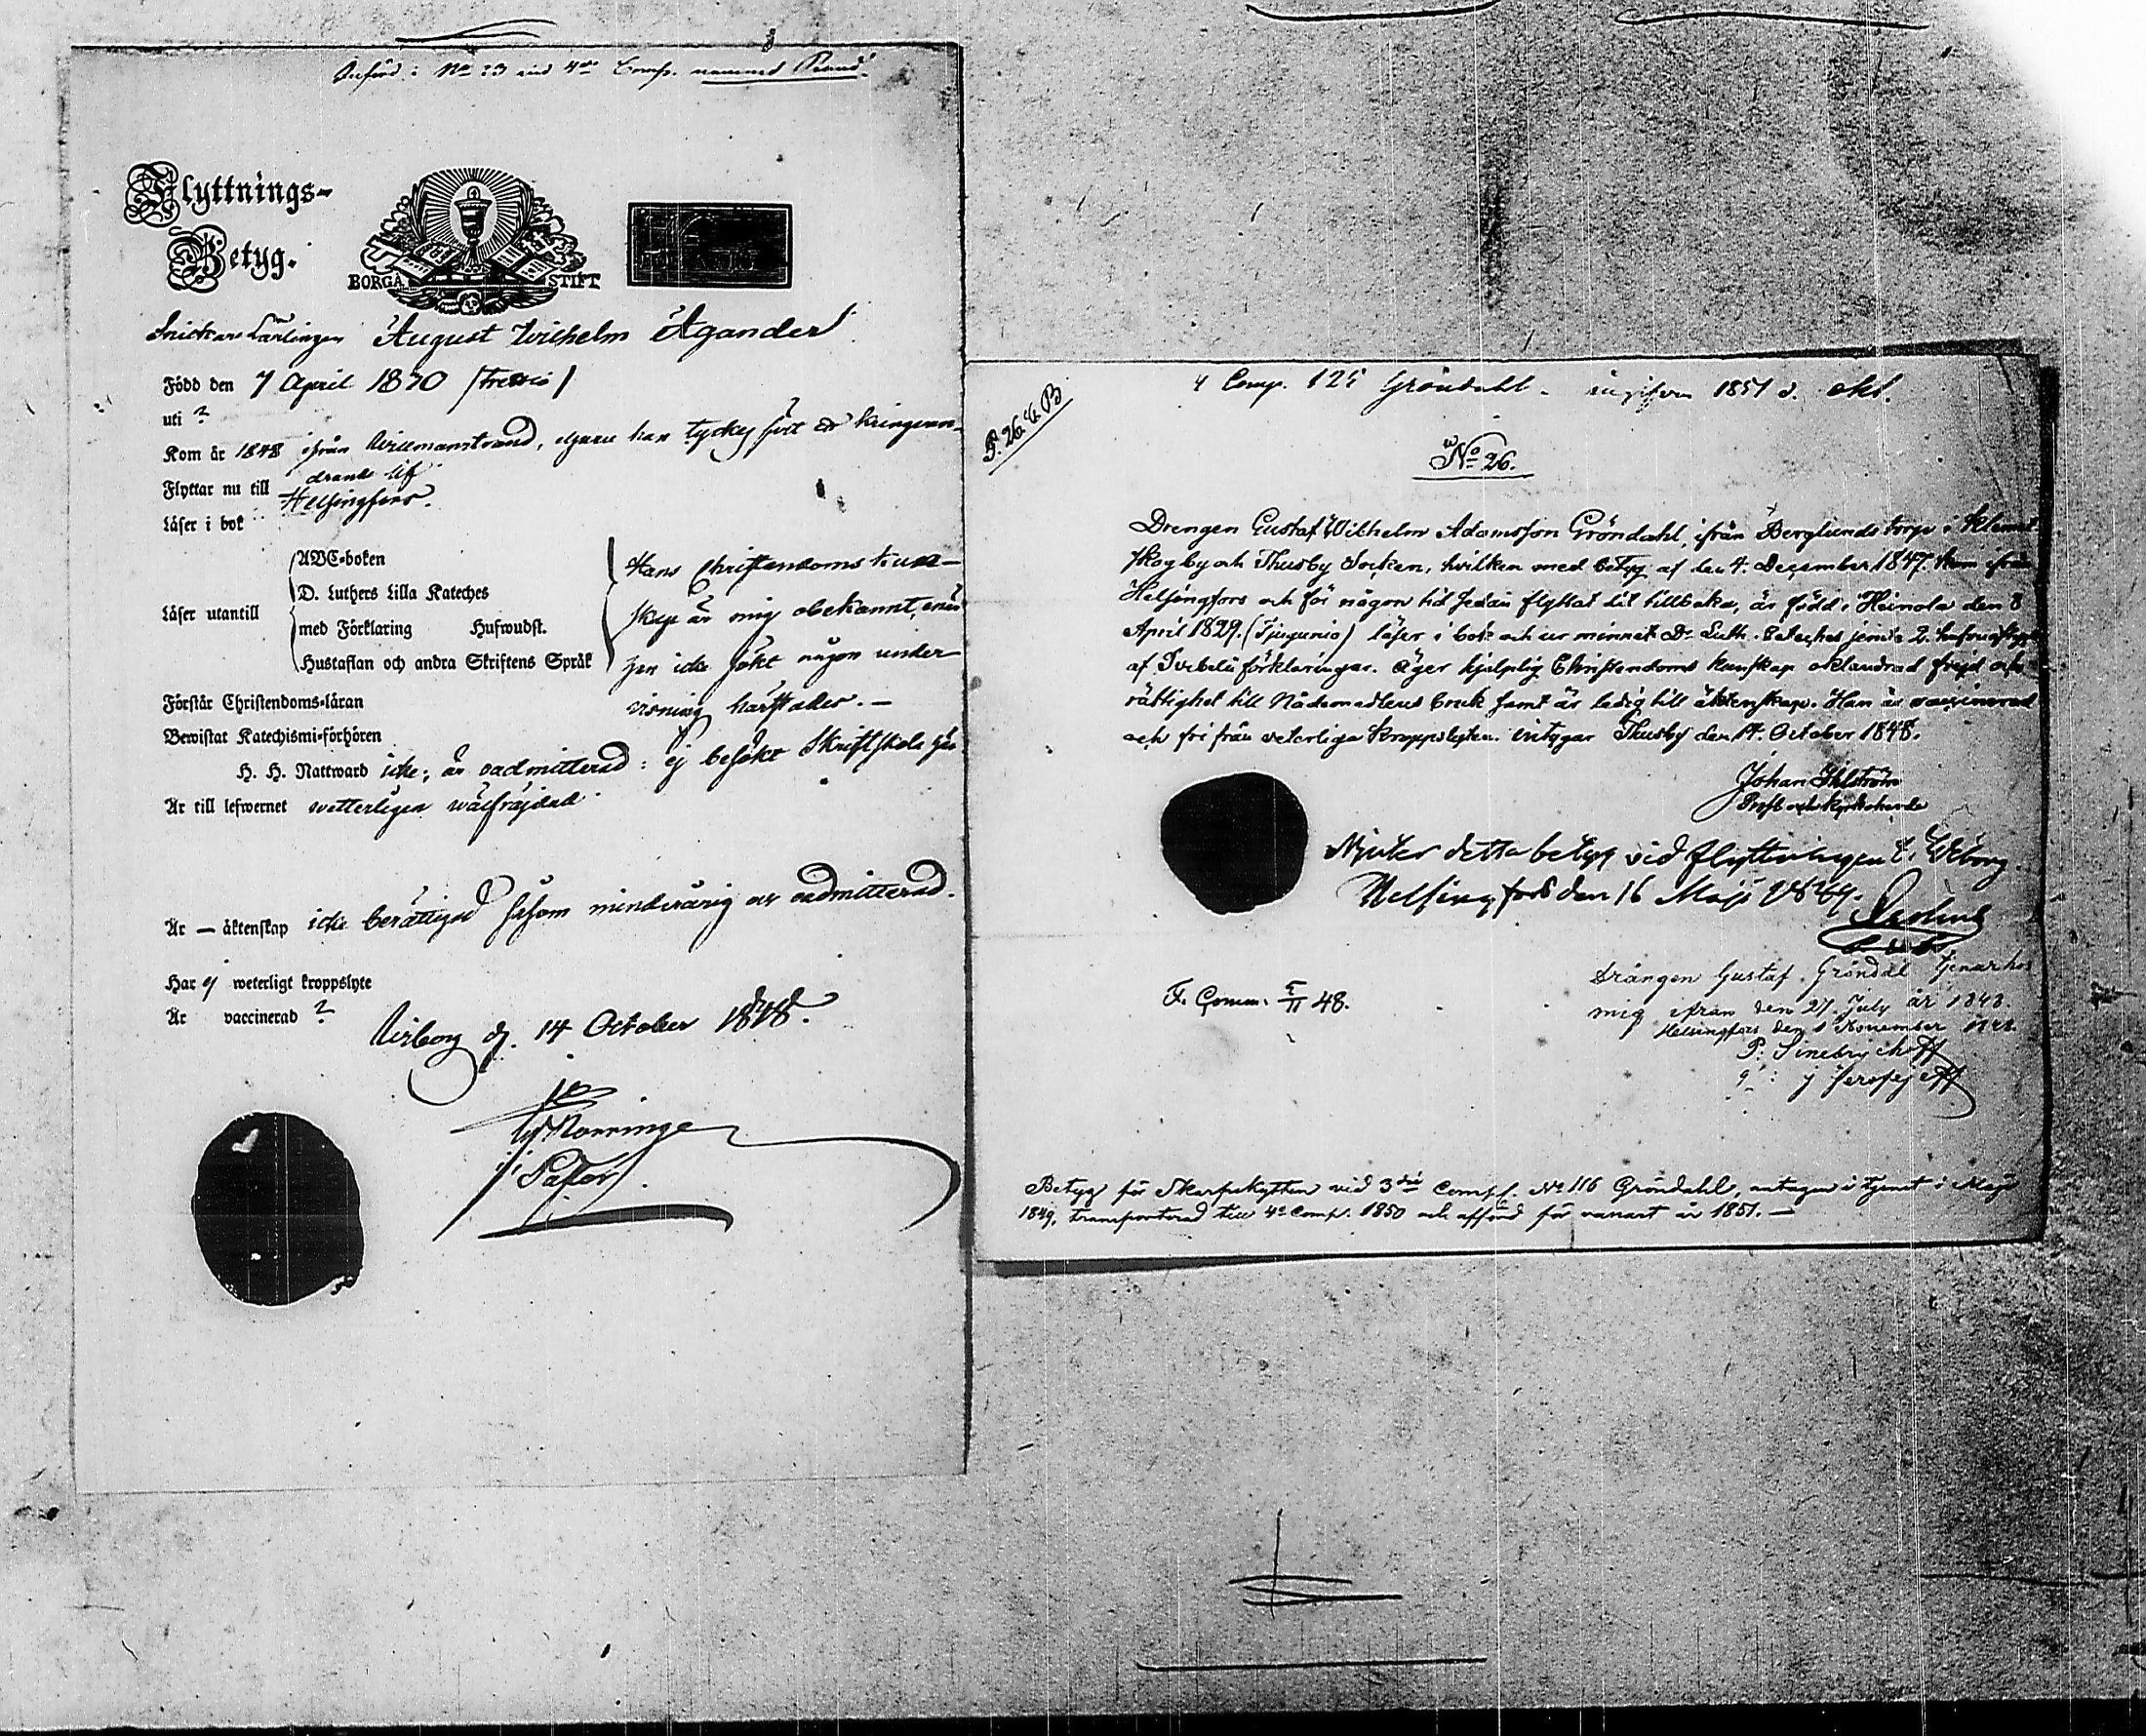 Införd i No 23 vid 4de Comp. namned Rund.
Flyttnings-
Betyg.
BORGÅ STIFT
Snickare Lärlingen August Wilhelm Agander
Född den 7 April 1830 /trettio/
uti ?
Kom år 1848 ifrån Willmanstrand, der han tyckes fört ett kringvan-
drande lif
Flyttar nu till Helsingfors.
Läser i bok
ABC-boken
D. Luthers Lilla Kateches
Läser utantill
med Förklaring Hufwudst.
Hustaflan och andra Skriftens Språk
Hans Christendoms kun-
skap är mig obekannt, enär
han icke sökt någon under-
visning härstädes. —
Förstår Christendoms-läran
Bewistat Katechismi-förhören
H. H. Nattward icke; är oadmitterad: ej besökt Skriftskola här
Är till lefwernet wetterligen wälfräjdad
Är — äktenskap icke berättigad såsom minderårig och oadmitterad.
Har ej weterligt kroppslyte
Är vaccinerad ?
Wiborg d. 14 October 1848.
Pastor
P. 26. & B
4 Comp. 125 Gröndahl - ingifven 1851 d. okt.
No 26.
Drengen Gustaf Wilhelm Adamsson Gröndahl, ifrån Berglunds torp i Klemet
skog by och Thusby Socken, hvilken med betyg af den 4. December 1847. kom ifrån
Helsingfors och för någon tid sedan flyttat dit tillbaka, är född i Heinola den 8
April 1829. (Tjugunio) läser i bok och ur minnet Dr Luth. Cateches jemte 2. hufvudstycken
af Svebelii förklaringar. Äger hjelplig Christendoms kunskap oklandrad frejd och
rättighet till Nådemedlens bruk samt är ledig till äktenskap. Han är vaccinerad
och fri från veterliga kroppslyten. intygar Thusby den 14. October 1848.
Johan Ahlström
Prost och Kyrkoherde
Njuter detta betyg vid flyttningen t. Wiborg
Helsingfors den 16 Maji 1849.
F. Comm. 5/11 48.
Drängen Gustaf Gröndal tjenar hos
mig ifrån den 27 July år 1848.
Helsingfors den 1 November 1848.
P: Sinebrychoff
Betyg för Skarpskytten vid 3dje Comp. No 116 Gröndahl, antagen i tjenst i Maji
1849, transporterad till 4e Comp. 1850 och afförd för vanart år 1851. —